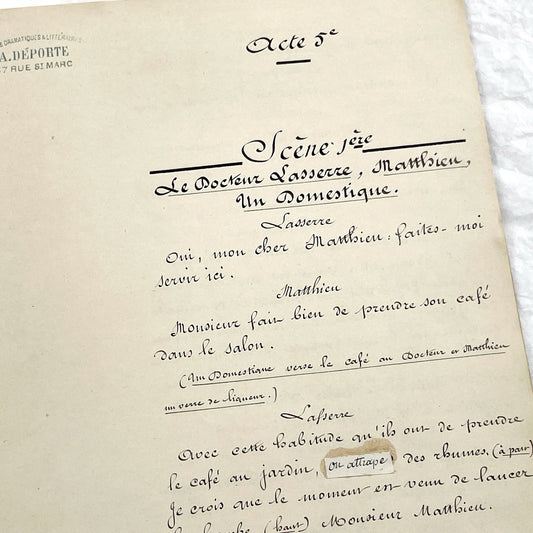 DRAMATIQUES & LITTÉRAIRES
A. DÉPORTE
7 RUE ST MARC
Acte 5e
Scène 1ère
Le Docteur Lasserre, Matthieu,
Un Domestique.
Lasserre
Oui, mon cher Matthieu : faites-moi
servir ici.
Matthieu
Monsieur fait bien de prendre son café
dans le salon.
(Un Domestique verse le café au Docteur et Matthieu
un verre de liqueur.)
Lasserre
Avec cette habitude qu'ils ont de prendre
le café au jardin, on attrape des rhumes. (à part)
Je crois que le moment est venu de lancer
(haut) Monsieur Matthieu.